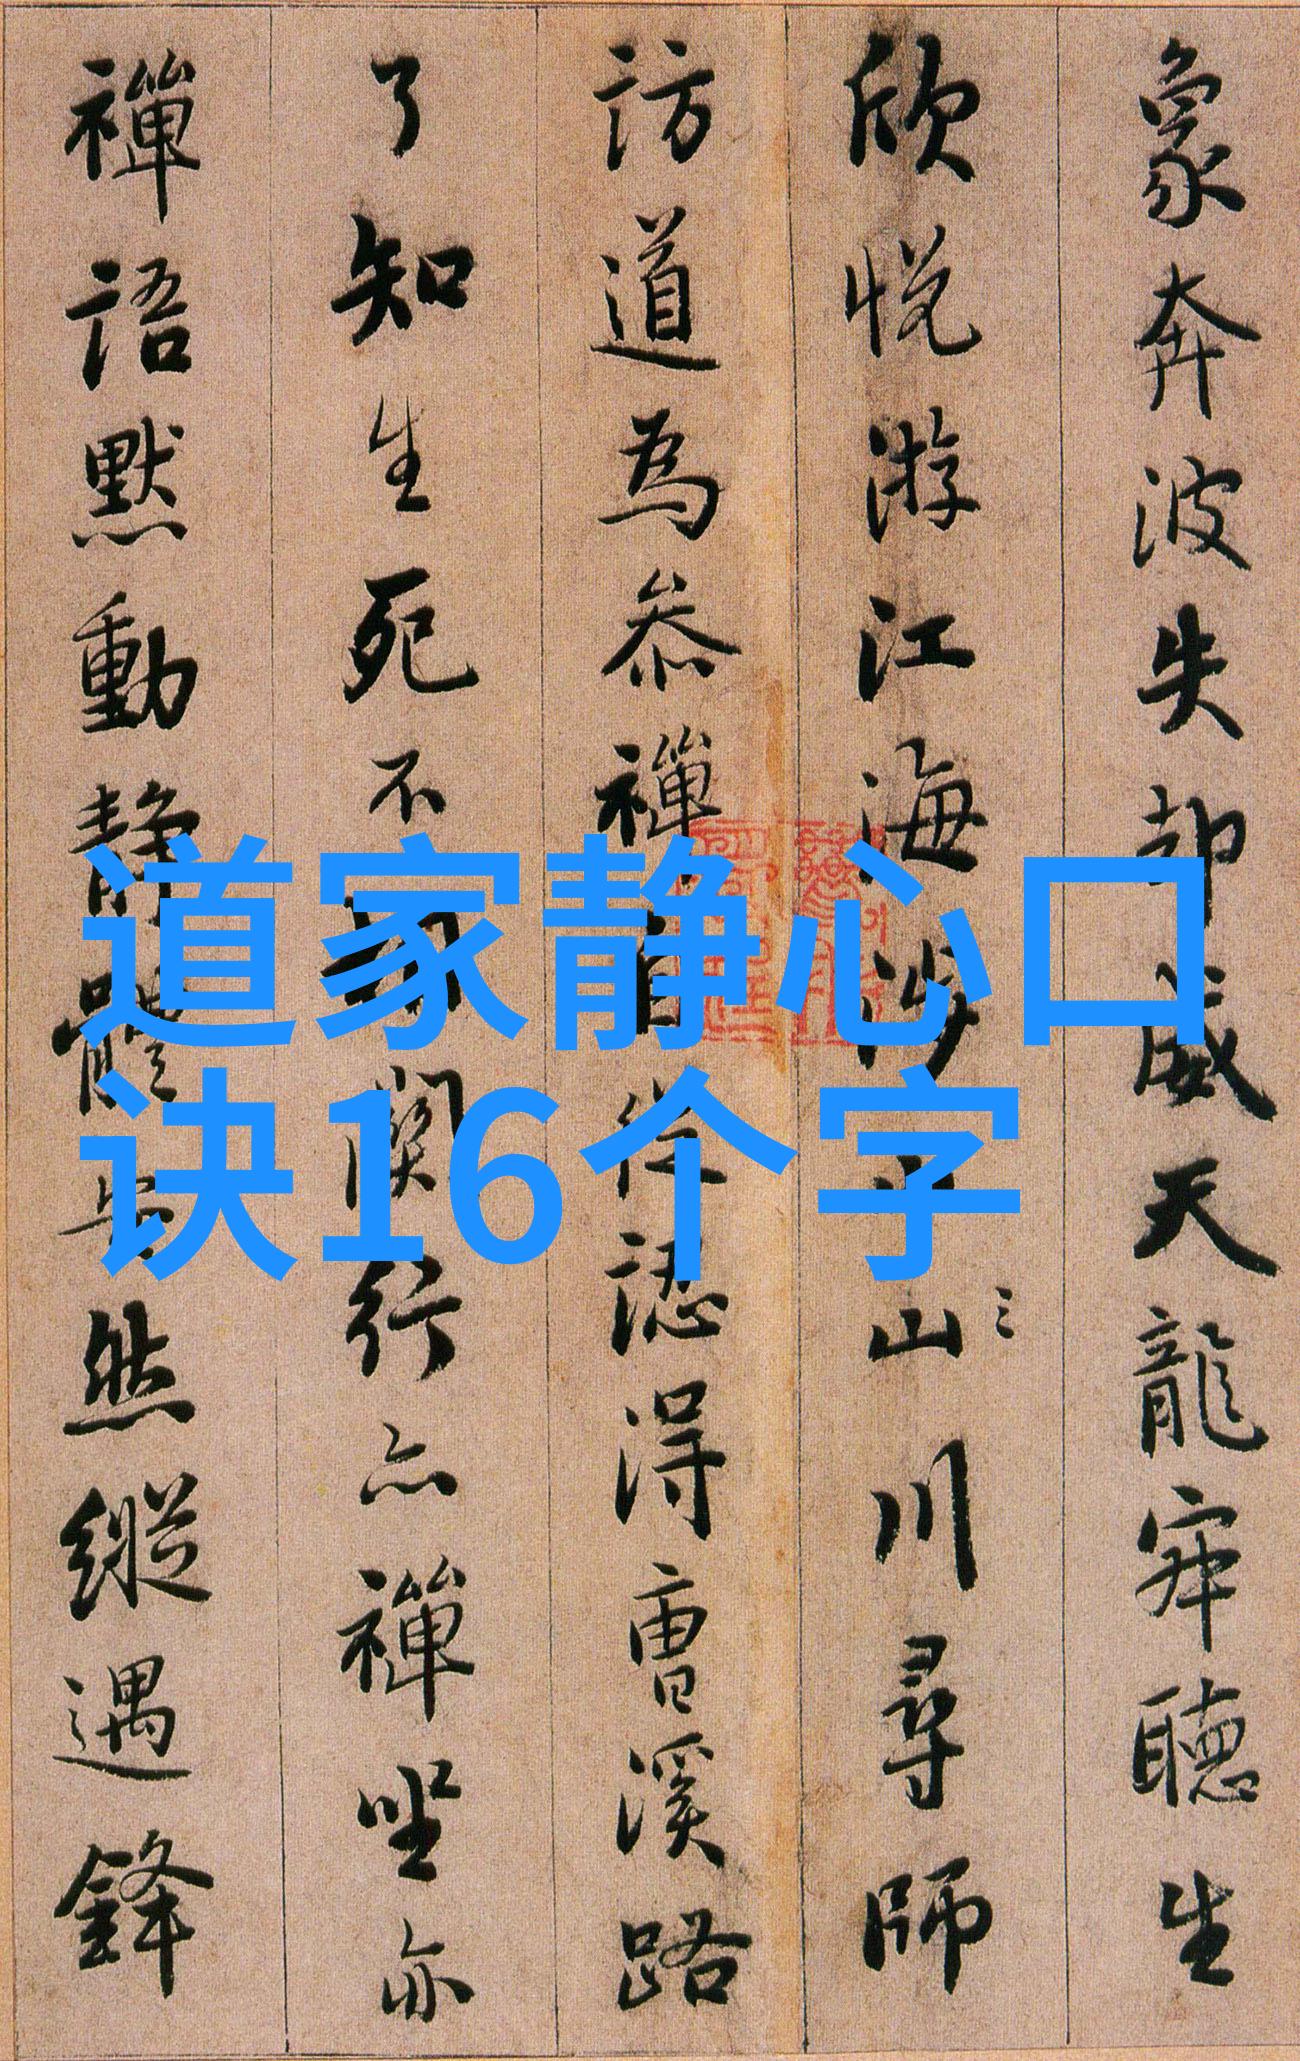 道家静心口
诀16个字
象奔波失却威天龍寂聽生
欣悅游江海涉山川尋師
訪道為叅禪自從認得曹溪路
了知生死不相關行亦禪坐亦
禪語默動靜體安然縱遇鋒